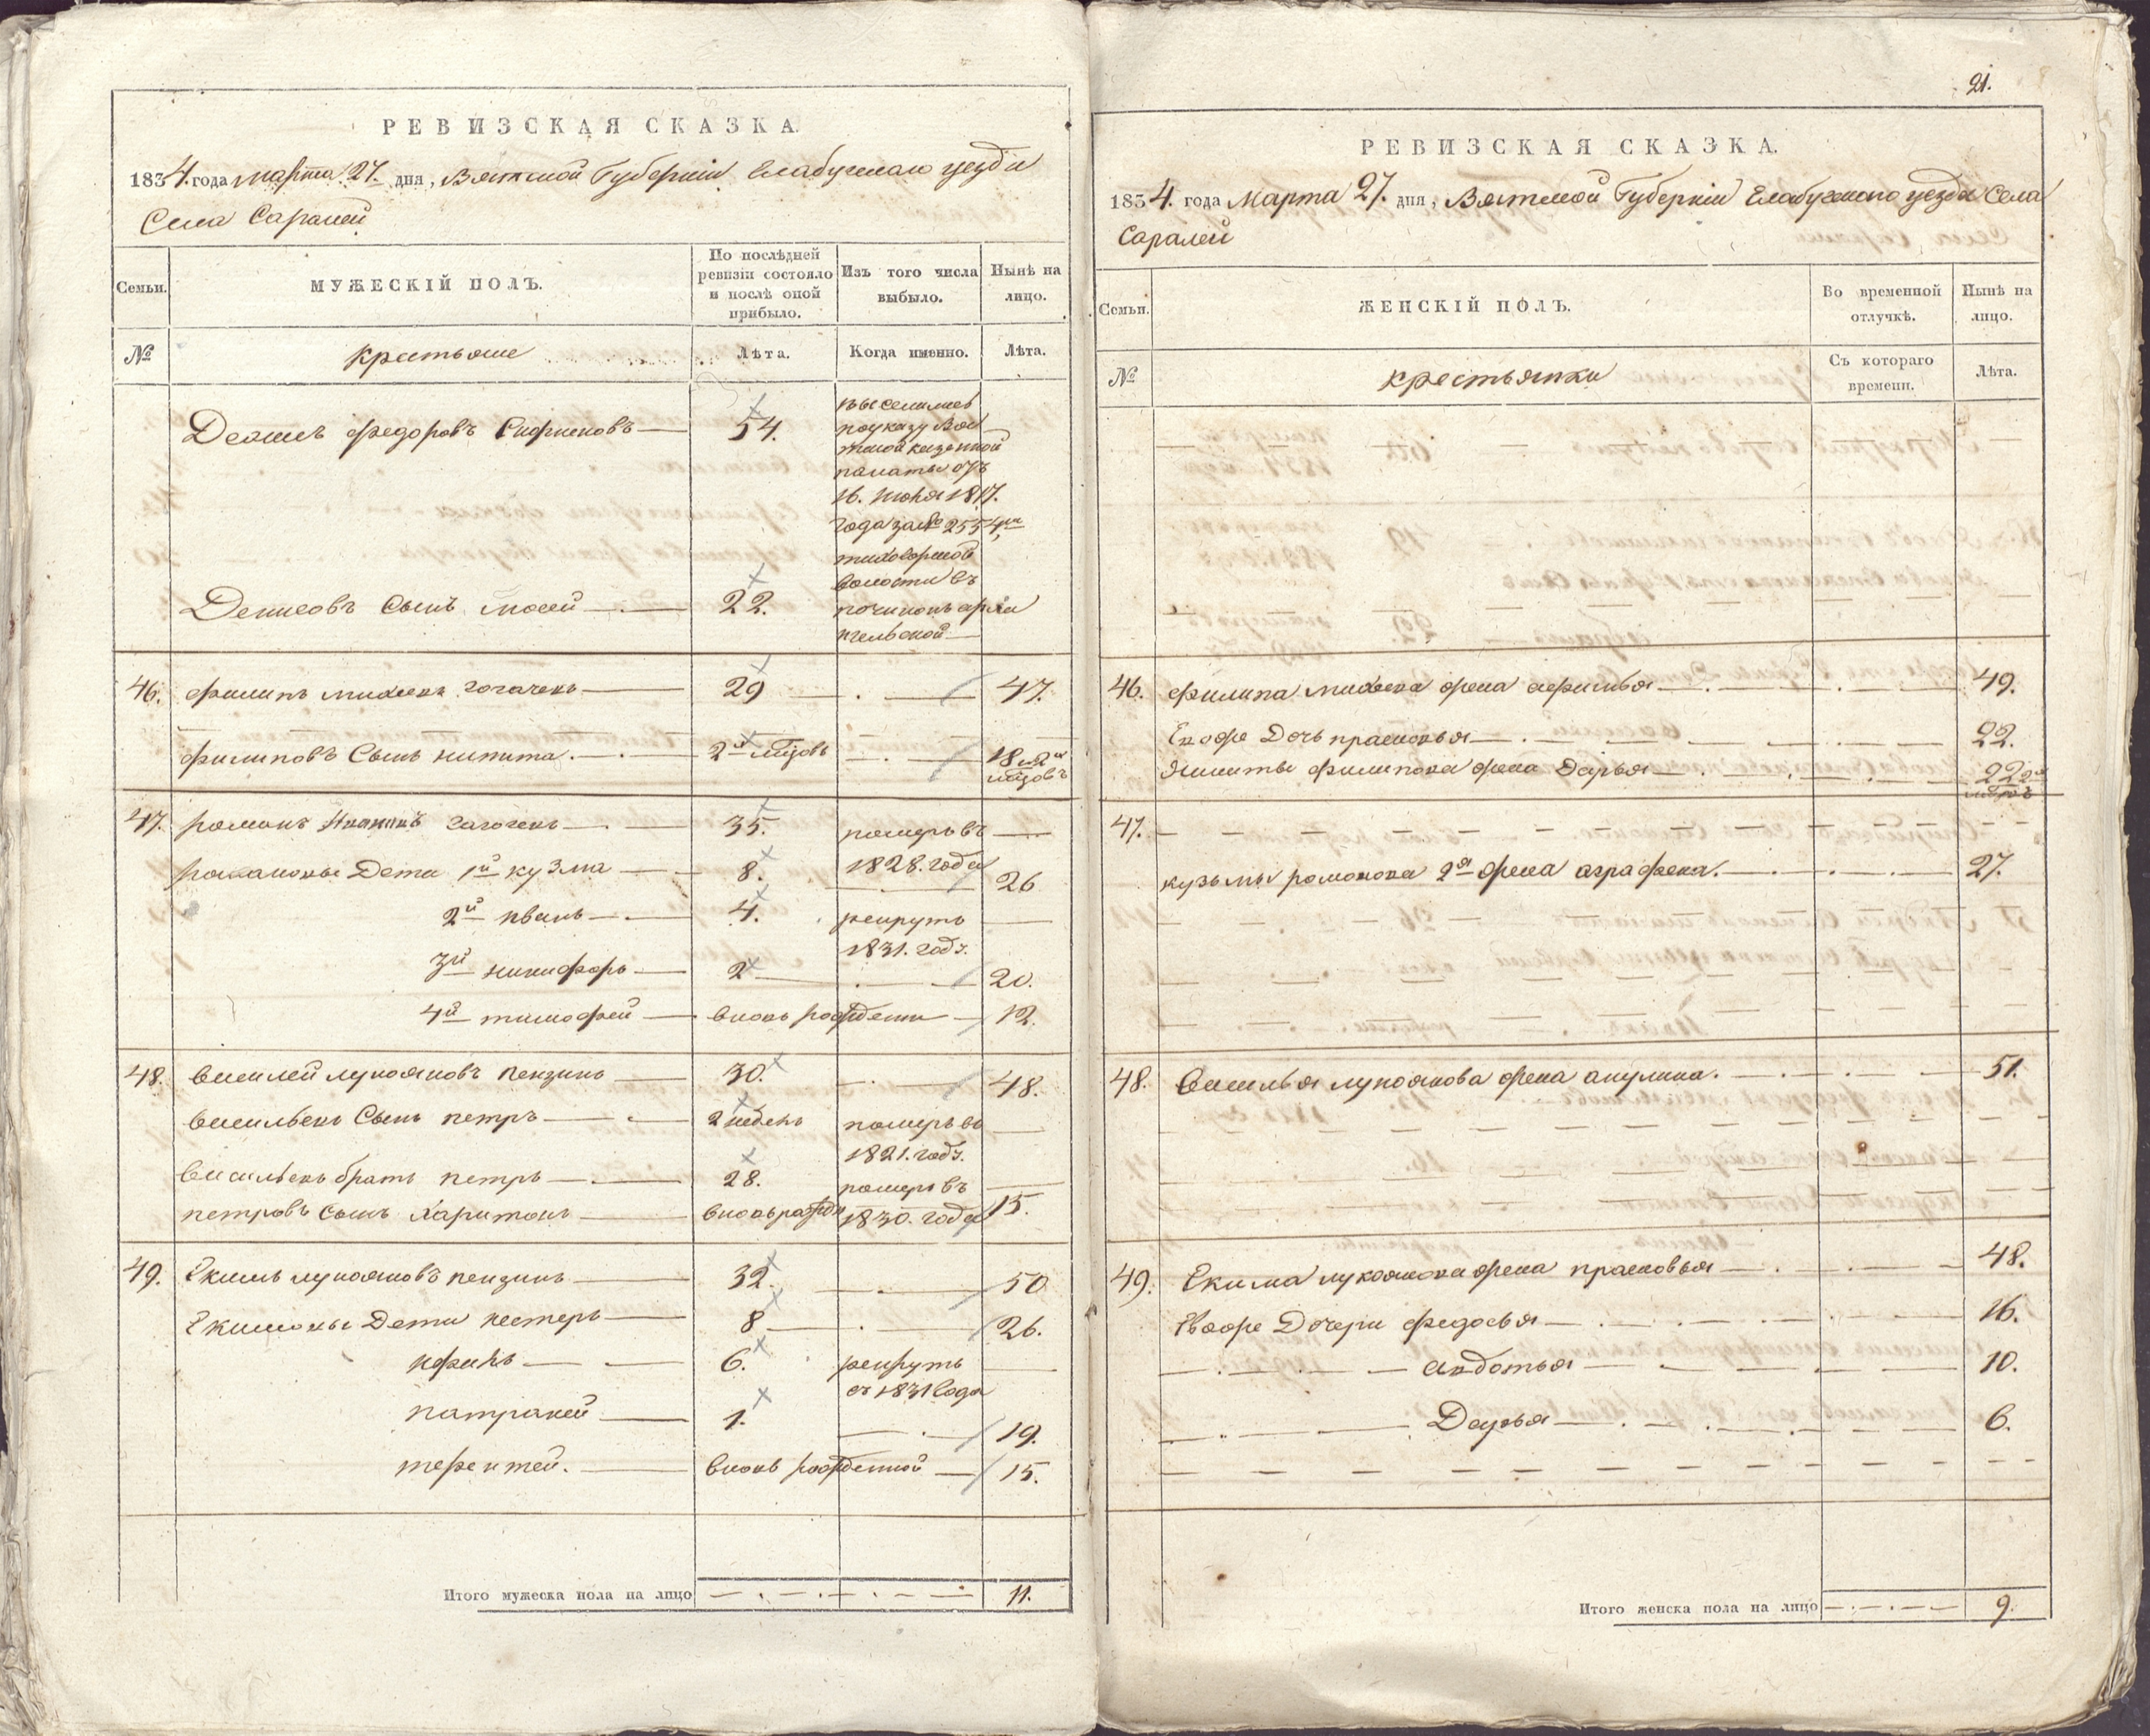 РЕВИЗСКАЯ СКАЗКА.
1834. года марта 27. дня, Вятской Губернiи Елабужскаго уезда
Села Саралей
Семьи.
МУЖЕСКIЙ ПОЛЪ.
По послѣдней ревизiи состояло и послѣ оной прибыло.
Изъ того числа выбыло.
Нынѣ на лицо.
№
крестьяне
Лѣта.
Когда именно.
Лѣта.
Денисъ федоровъ
54.
по указу Вят
ской казенной
палаты отъ
16. июня 1817.
года за № 2554
волости въ
Денисовъ сынъ мосей
22.
починокъ арха
нгельской
46. филипъ михеевъ гогачевъ
29
47.
филиповъ Сынъ никита.
2й мѣцовъ
18 и 2й
мѣцовъ
47. романъ
35.
померъ въ
1828. года
романовы Дети 1й кузма
8.
26
2й иванъ
4.
рекрутъ
1831. году.
3й никифоръ
2
20.
4й тимофей
вновь рожденъ
12.
48. василей лукояновъ пензинъ
30.
48.
васильевъ Сынъ петръ
2 недель
померъ въ
1821. году.
васильевъ братъ петръ
28.
померъ въ
1830. года
петровъ сынъ Харитонъ
вновь рожден
15.
49. Екимъ лукояновъ пензинъ
32.
50
Екимовы Дети нестеръ
8
26.
ифанъ
6.
рекрутъ
съ 1831 года
патракей
1.
19.
терентей.
вновь рожденной
15.
Итого мужеска пола на лицо
11.
21.
РЕВИЗСКАЯ СКАЗКА.
1834. года Марта 27. дня, Вятской Губернiи Елабужского уезда Села
Саралей
Семьи.
ЖЕНСКIЙ ПОЛЪ.
Во временной отлучкѣ.
Нынѣ на лицо.
№
крестьянки
Съ котораго времени.
Лѣта.
46. филипа михеева жена афимья
49.
Его же Дочь прасковья
22.
Никиты филипова жена Дарья
22 2й
мѣцовъ
47.
кузьмы романова 2я жена аграфена.
27.
48. Василья лукоянова жена акулина.
51.
49. Екима лукоянова жена прасковья
48.
Его же Дочери федосья
16.
авдотья
10.
Дарья
6.
Итого женска пола на лицо
9.